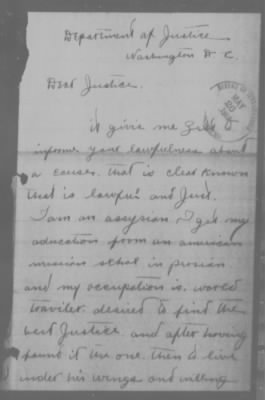 Department of Justice
Washington D. C.
Dear Justice.
it give me
informe your lawfulness about
a causes. that is clear known
that is lawful and Just.
I am an assyrian, I get my
aducation from an american
mission schol in prosian
and my occupation is. world
traviler. desired to find the
best Justice. and after having
found it the one. then to live
under his wings and willing